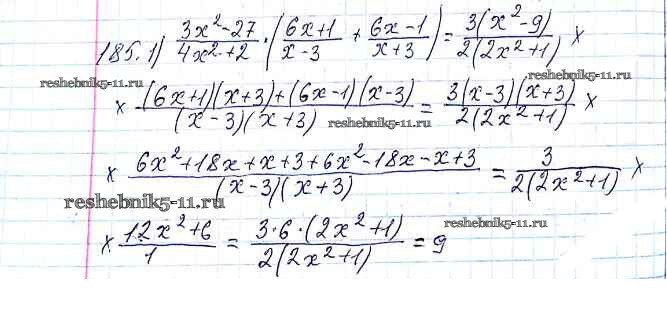 185.1) (3x²-27)/(4x²+2) · ((6x+1)/(x-3) + (6x-1)/(x+3)) = 3(x²-9)/2(2x²+1) ×
reshebnik5-11.ru reshebnik5-11.ru
× ((6x+1)(x+3)+(6x-1)(x-3))/((x-3)(x+3)) = 3(x-3)(x+3)/2(2x²+1) ×
reshebnik5-11.ru
× (6x²+18x+x+3+6x²-18x-x+3)/((x-3)(x+3)) = 3/2(2x²+1) ×
reshebnik5-11.ru
× (12x²+6)/1 = 3·6·(2x²+1)/2(2x²+1) = 9
reshebnik5-11.ru